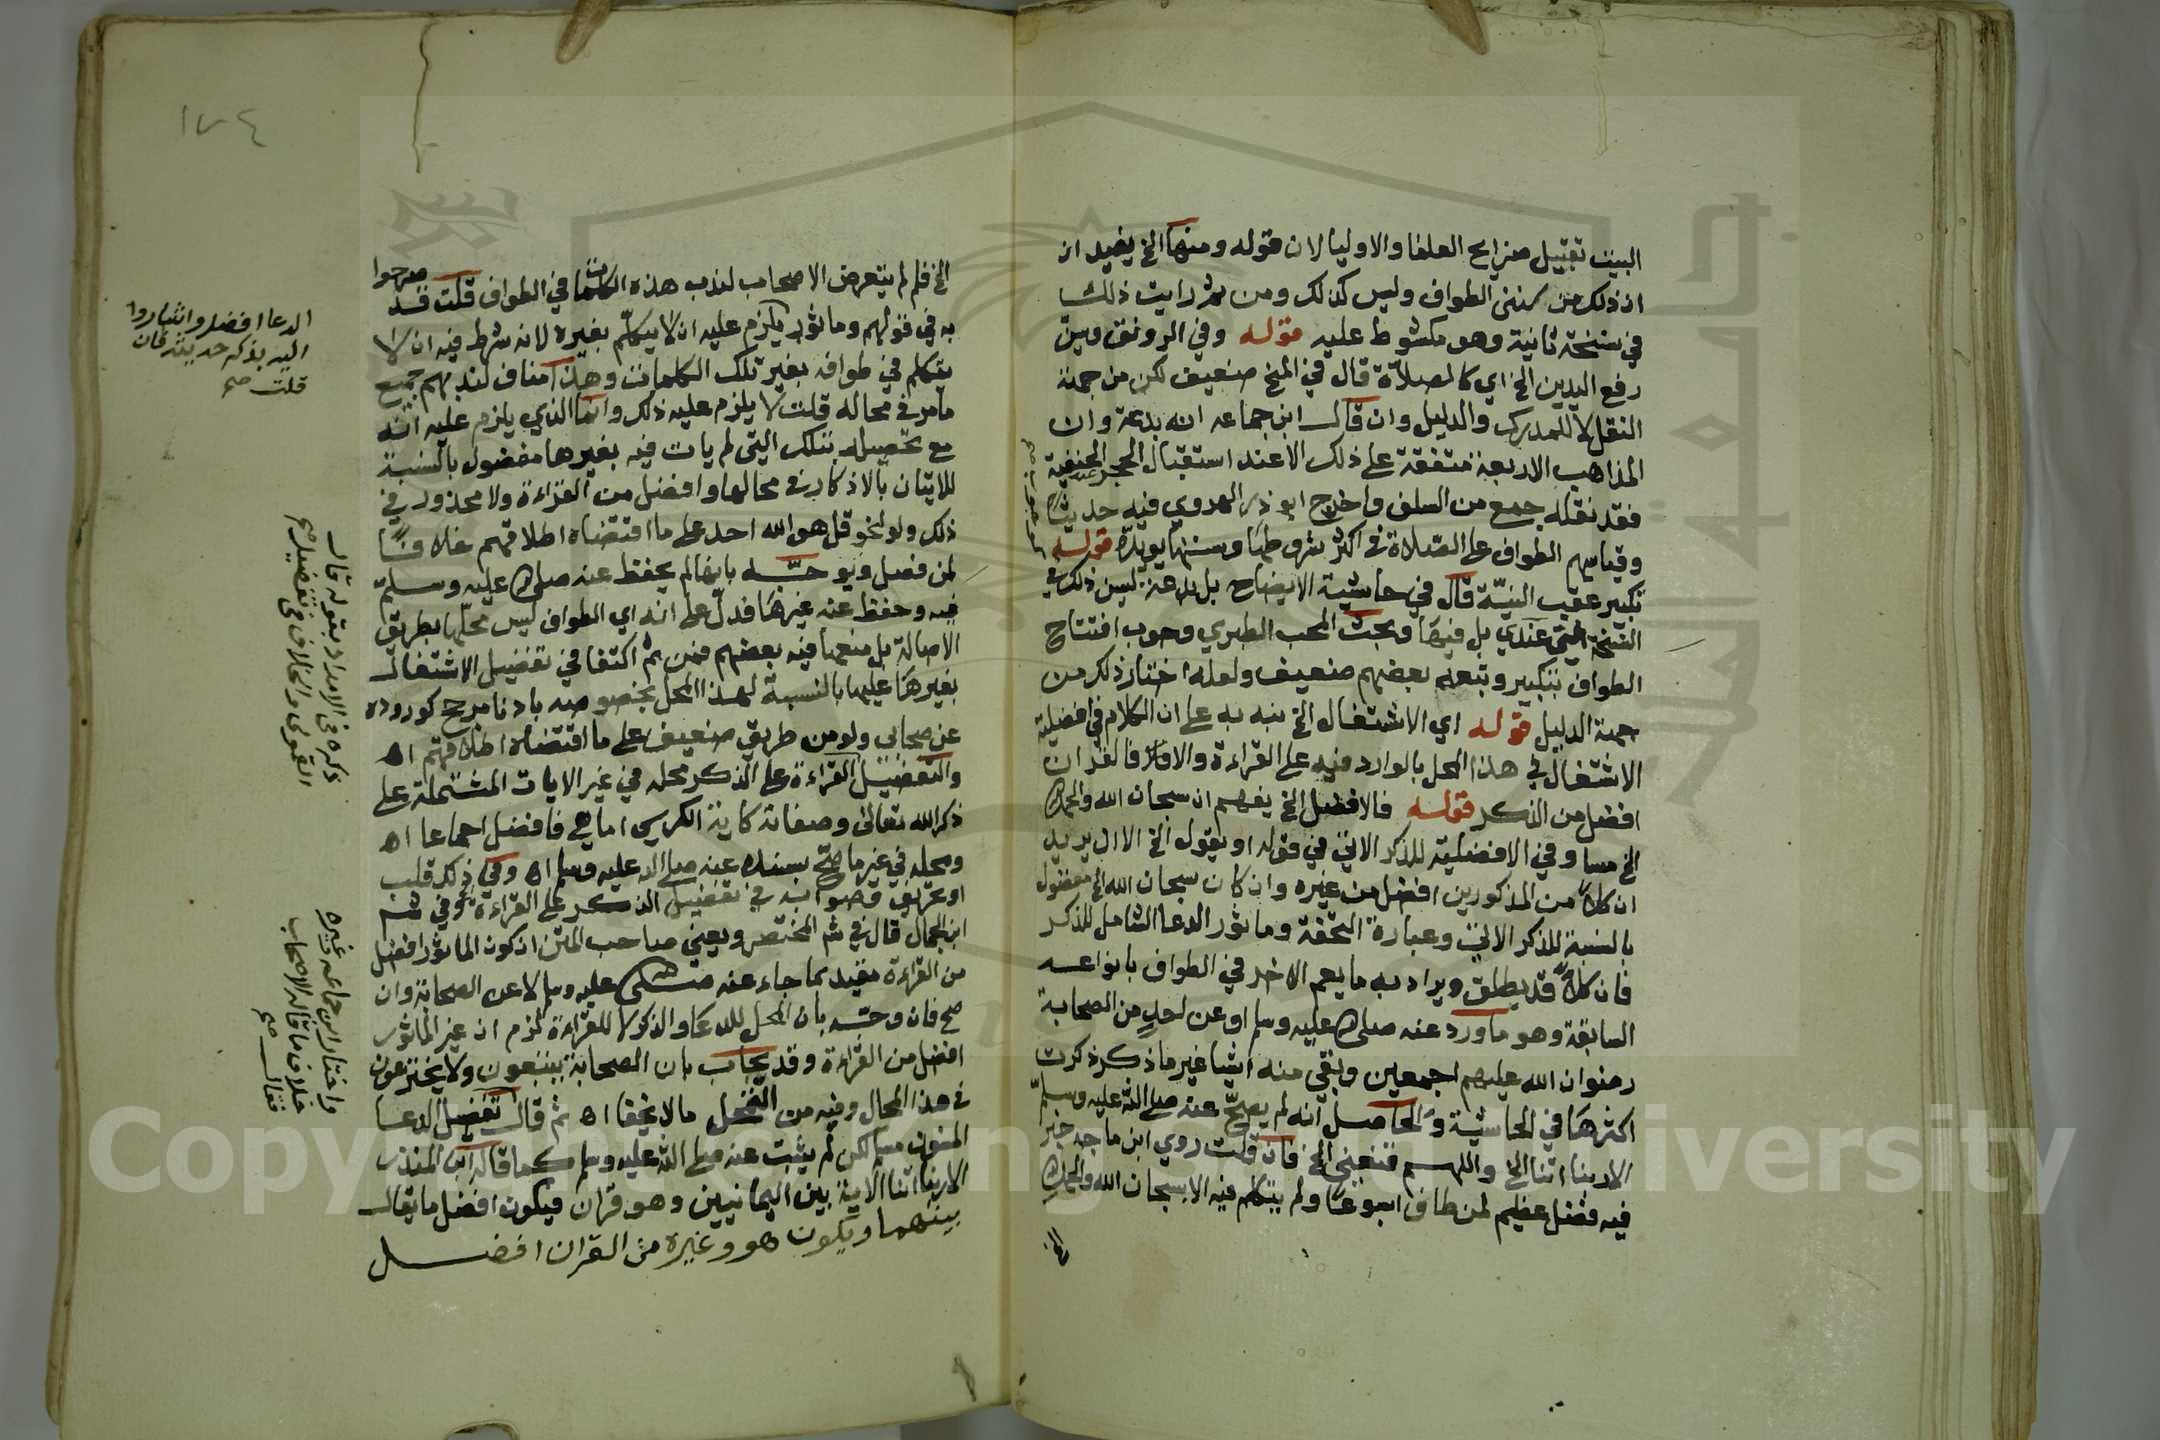 البيت تقبيل ضرايح العلما والاوليا لان قوله ومنها الخ يفيد ان
ان ذلك من سنن الطواف وليس كذلك ومن ثم رايت ذلك
في نسخة ثانية وهو مكشوط عليه قوله وفي الرونق وسن
رفع اليدين الخ اي كالصلاة قال في المنح ضعيف لكن من جهة
النقل لا للمدرك والدليل وان قال ابن جماعه انه بدعة وان
المذاهب الاربعة متفقة على ذلك الا عند استقبال الحجر عند الحنفية
فقد نقله جمع من السلف واخرج ابو ذر الهروي فيه حديثا
وقياسهم الطواف على الصلاة في اكثر شروطها وسننها يويده قوله
تكبير عقب النيّة قال في حاشية الايضاح بل بدعة ليس ذلك في
النسخة التي عندي بل فيها وبحث المحب الطبري وجوب افتتاح
الطواف بتكبير وتبعه بعضهم ضعيف ولعله اختار ذلك من
جهة الدليل قوله اي الاشتغال الخ نبه به على ان الكلام في افضلية
الاشتغال في هذا المحل بالوارد فيه على القراءة والا فالقران
افضل من الذكر قوله فالافضل الخ يفهم ان سبحان الله والحمد لله
الخ مساو في الافضلية للذكر الاتي في قوله او يقول الخ الا ان يريد
ان كلا من المذكورين افضل من غيره وان كان سبحان الله الخ مفضول
بالنسبة للذكر الاتي وعبارة التحفة وماثور الدعا الشامل للذكر
فان كلا قد يطلق ويراد به ما يعم الاخر في الطواف بانواعه
السابقة وهو ما ورد عنه صلى الله عليه وسلم او عن احد من الصحابة
رضوان الله عليهم اجمعين وبقي منه اشيا غير ما ذكر ذكرت
اكثرها في الحاشية والحاصل انه لم يصح عنه صلى الله عليه وسلم
الا ربنا اتنا الخ واللهم قنعني الخ فان قلت روي ابن ماجه خبرا
فيه فضل عظيم لمن طاف اسبوعا ولم يتكلم فيه الا بسبحان الله والحمد لله
الخ
١٧٤
الخ فلم لم يتعرض الاصحاب لندب هذه الكلمات في الطواف قلت قد صرحوا
به في قولهم وماثور يلزم عليه ان لا يتكلم بغيره لانه شرط فيه ان لا
يتكلم في طوافه بغير تلك الكلمات وهذا مناف لندبهم جميع
ما مر في محاله قلت لا يلزم عليه ذلك وانما الذي يلزم عليه انه
مع تحصيله بتلك التي لم يات فيه بغيرها مفضول بالنسبة
للاتيان بالاذكار في محالها وافضل من القراءة ولا محذور في
ذلك ولو نحو قل هو الله احد على ما اقتضاه اطلاقهم خلافا
لمن فصل ويوجه بانها لم يحفظ عنه صلى الله عليه وسلم
فيه وحفظ عنه غيرها فدل على انه اي الطواف ليس محلها بطريق
الاصالة بل منعها فيه بعضهم فمن ثم اكتفا في تفضيل الاشتغال
بغيرها عليها بالنسبة لهذا المحل بخصوصه بادنا مرجح كوروده
عن صحابي ولو من طريق ضعيف على ما اقتضاه اطلاقهم اه
والتفضيل القراءة على الذكر محله في غير الايات المشتملة على
ذكر الله تعالى وصفاته كاية الكرسي اما هي فافضل اجماعا اه
ومحله في غير ما صح بسنده عنه صلى الله عليه وسلم اه وفي ذلك قلب
او تحريف وصوابه في تفضيل الذكر على القراءة وفي شم
ابن الجمال قال في شم المختصر ويعني صاحب المتن ان كون الماثور افضل
من القراءة مقيد بما جاء عنه صلى الله عليه وسلم لا عن الصحابة وان
صح فان وجه بان المحل للدعا والذكر لا للقراءة لزم ان غير الماثور
افضل من القراءة وقد يجاب بان الصحابة يتبعون ولا يخترعون
في هذا المحال وفيه من التمحل ما لا يخفا اه ثم قال تفضيل الدعا
المسنون مسلم لكن لم يثبت عنه صلى الله عليه وسلم كما قاله ابن المنذر
الا ربنا اتنا الاية بين اليمانيين وهو قران فيكون افضل ما يقال
بينهما ويكون هو وغيره من القران افضل
الدعا افضل واشاروا
اليه بذكر حديث فان
قلت صح
ذكره في الامداد بقوله قال
القمولي والخلاف في تفضيل صح
واختار ابن جماعه وغيره
خلاف ما قاله الاصحاب
فقال صح
Copyright © King Saud University